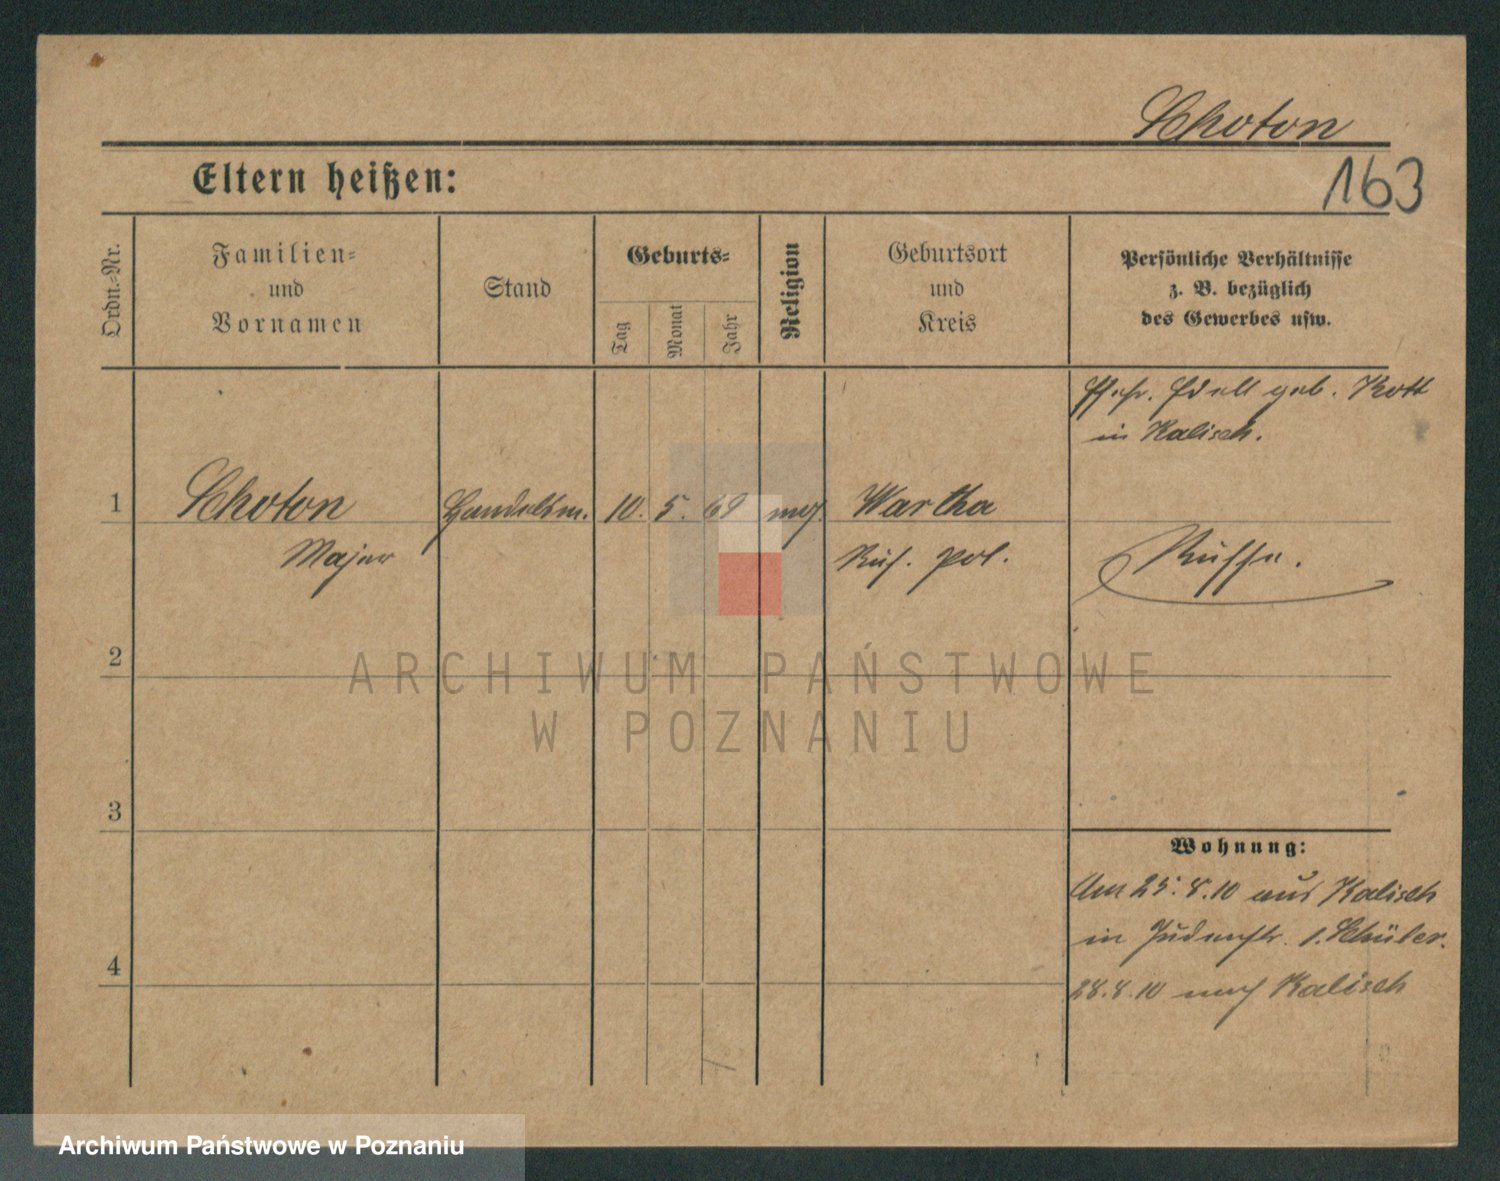 Schoton
163
Eltern heißen:
Ordn.-Nr.
Familien-
und
Vornamen
Stand
Geburts-
Tag
Monat
Jahr
Religion
Geburtsort
und
Kreis
Persönliche Verhältnisse
z. B. bezüglich
des Gewerbes usw.
geb. Kott
in Kalisch.
1 Schoton Handelsm. 10. 5. 69 mos. Wartha
Majer Rus. pol. Russe.
2
ARCHIWUM PAŃSTWOWE
W POZNANIU
3
Wohnung:
Am 25.8.10 aus Kalisch
in Judenstr. 1. Schüler.
4
28.8.10 nach Kalisch
Archiwum Państwowe w Poznaniu